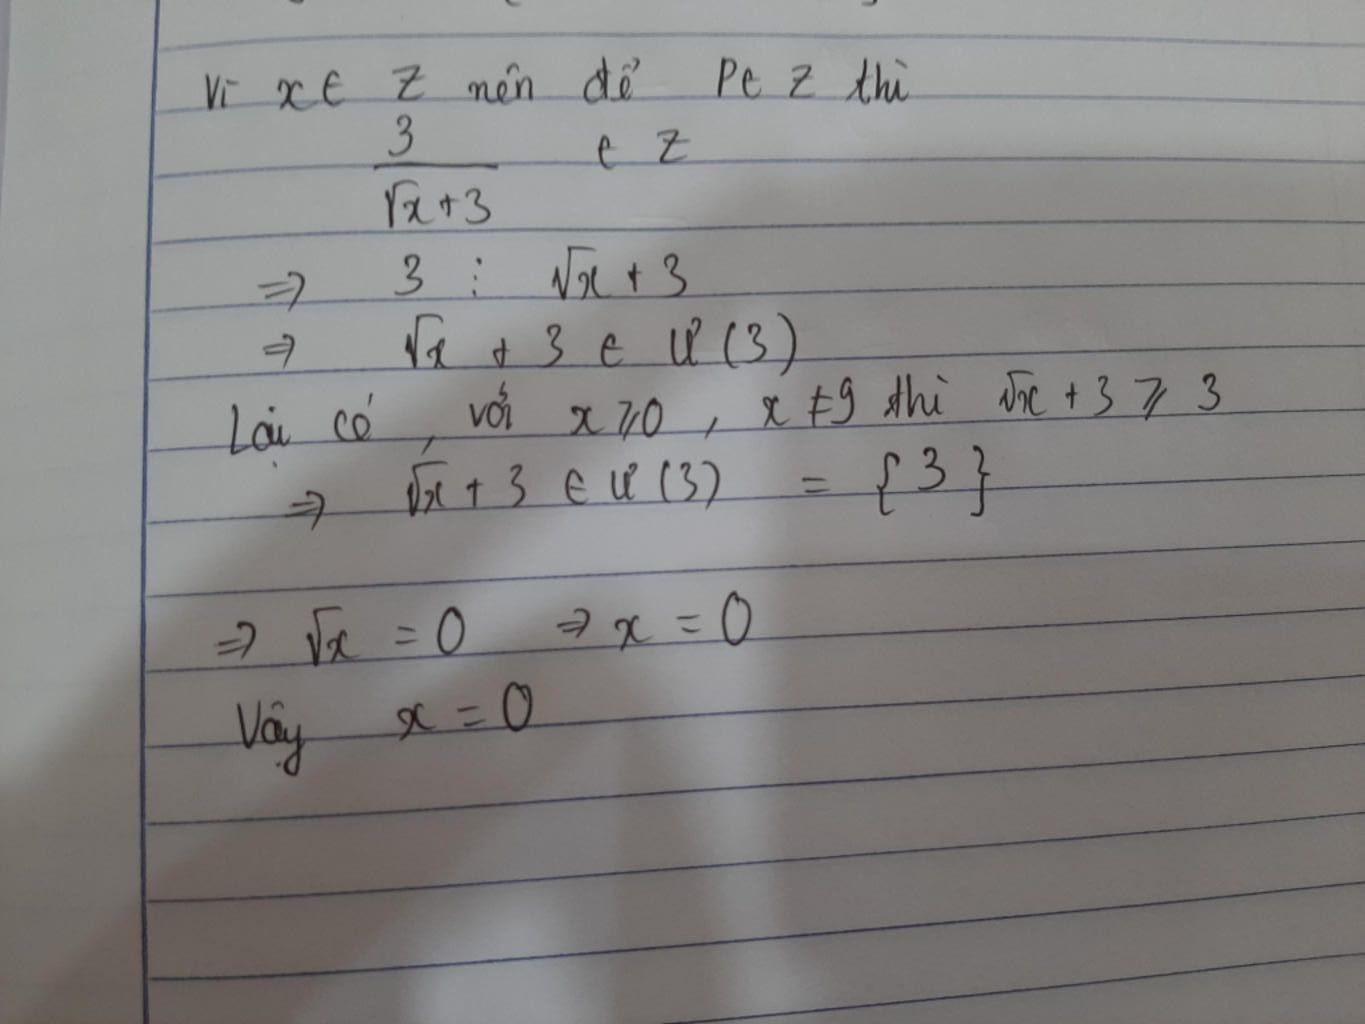 Vì x ∈ Z nên để P ∈ Z thì
3/(√x+3) ∈ Z
⇒ 3 ⋮ √x + 3
⇒ √x + 3 ∈ Ư (3)
Lại có, với x ⩾ 0, x ≠ 9 thì √x + 3 ⩾ 3
⇒ √x + 3 ∈ Ư (3) = {3}
⇒ √x = 0 ⇒ x = 0
Vậy x = 0